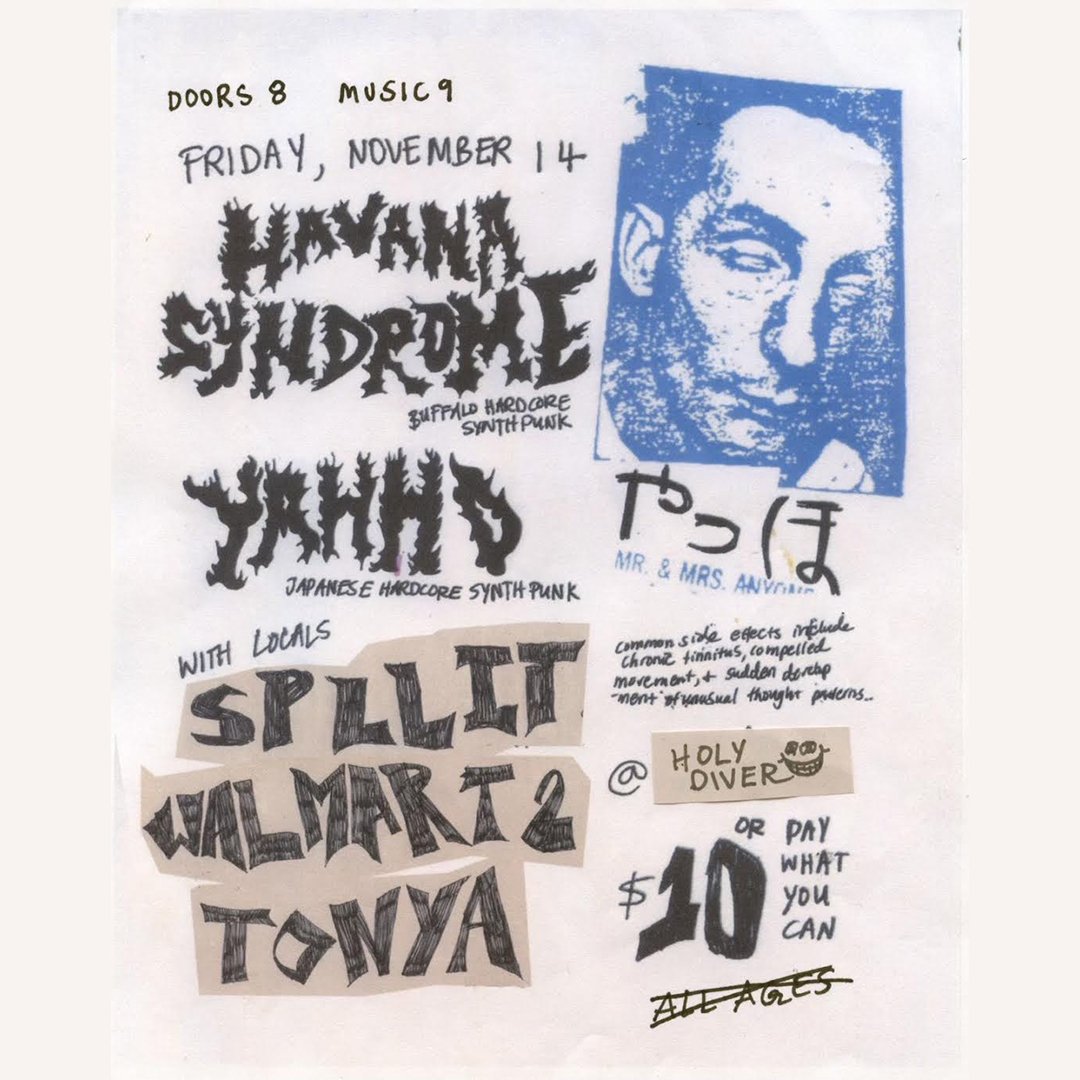 DOORS 8 MUSIC 9
FRIDAY, NOVEMBER 14
HAVANA
SYNDROME
BUFFALO HARDCORE
SYNTH PUNK
YAHHO
JAPANESE HARDCORE SYNTH PUNK
やっほ
MR. & MRS. ANYONE
WITH LOCALS
SPLLIT
WALMART 2
TONYA
common side effects include
chronic tinnitus, compelled
movement, + sudden develop
-ment of unusual thought patterns..
@ HOLY
DIVER
$10 OR PAY
WHAT
YOU
CAN
ALL AGES